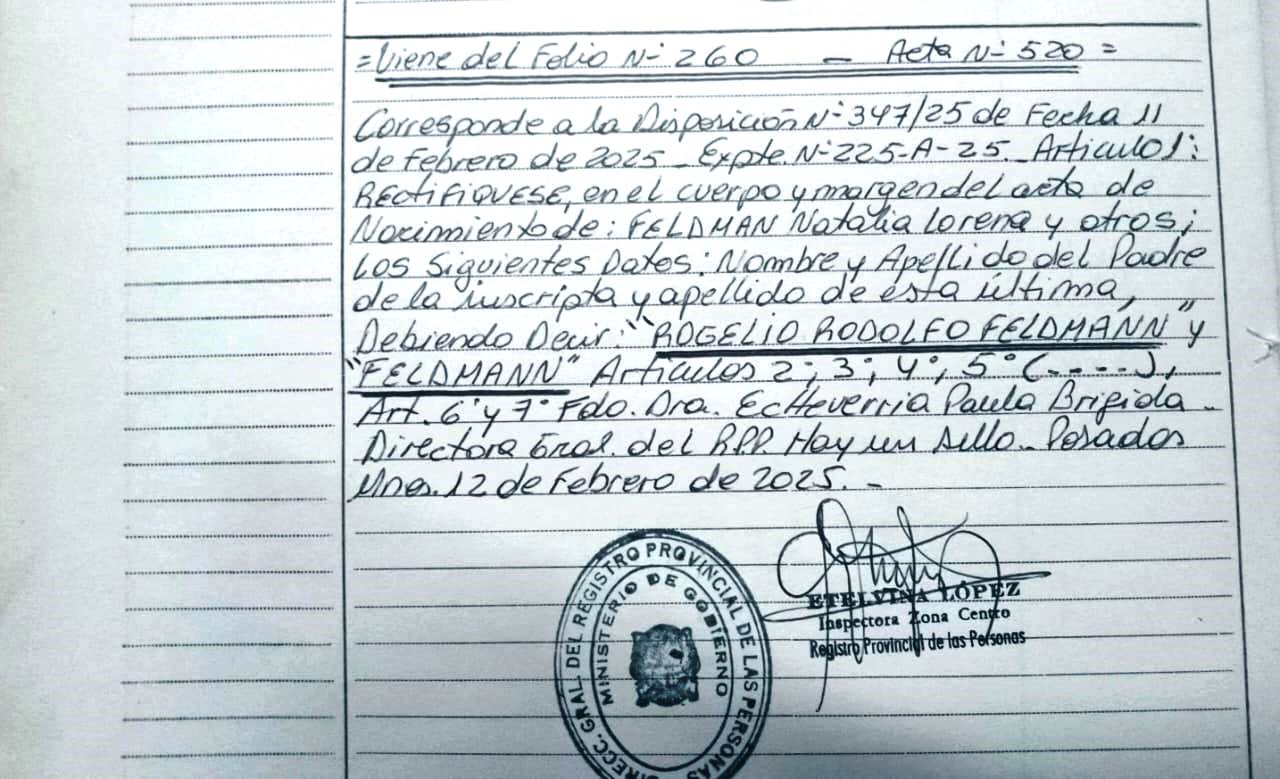 =Viene del Folio N- 260 - Acta N- 520=
Corresponde a la Disposición N- 347/25 de Fecha 11
de Febrero de 2025_ Expte. N-225-A-25._ Articulo 1:
RECTIFIQUESE, en el cuerpo y margen del acta de
Nacimiento de: FELDMAN Natalia Lorena y otros;
Los Siguientes Datos: Nombre y Apellido del Padre
de la inscripta y apellido de esta última,
Debiendo Decir: "ROGELIO RODOLFO FELDMANN" y
"FELDMANN" Articulos 2°, 3°, 4°, 5° (-----),
Art. 6° y 7° Fdo. Dra. Echeverria Paula Brigida -
Directora Gral. del R.P.P. Hay un sello._ Posadas
Mnes. 12 de Febrero de 2025. -
DIRECC. GRAL. DEL REGISTRO PROVINCIAL DE LAS PERSONAS
MINISTERIO DE GOBIERNO
ETELVINA LÓPEZ
Inspectora Zona Centro
Registro Provincial de las Personas